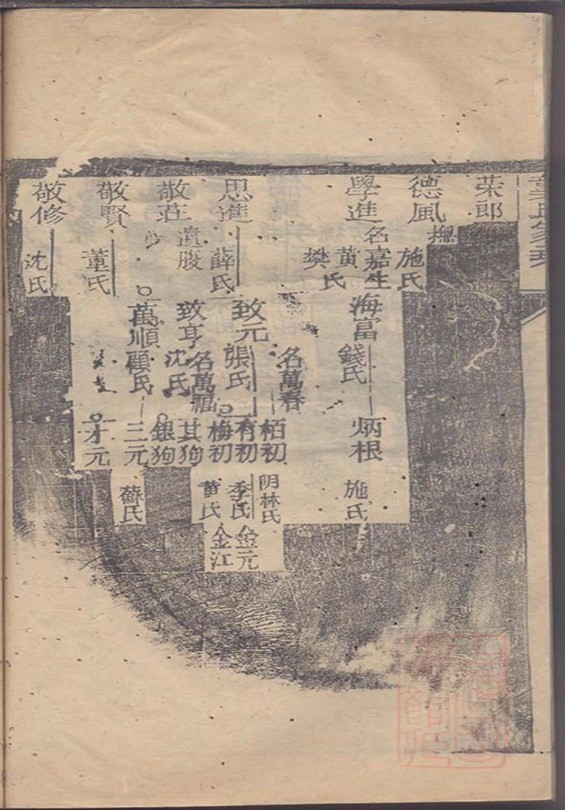 德風
施氏
學進
名嘉生
黃氏
樊氏
海富
錢氏
炳根
施氏
思進
薛氏
致元
名萬春
張氏
栢初
有初
梅初
阴林氏
季氏
金元
金江
敬莊
遺腹
致亨
名萬福
沈氏
其狗
銀狗
敬賢
董氏
萬順
顧氏
三元
蘇氏
才元
敬修
沈氏